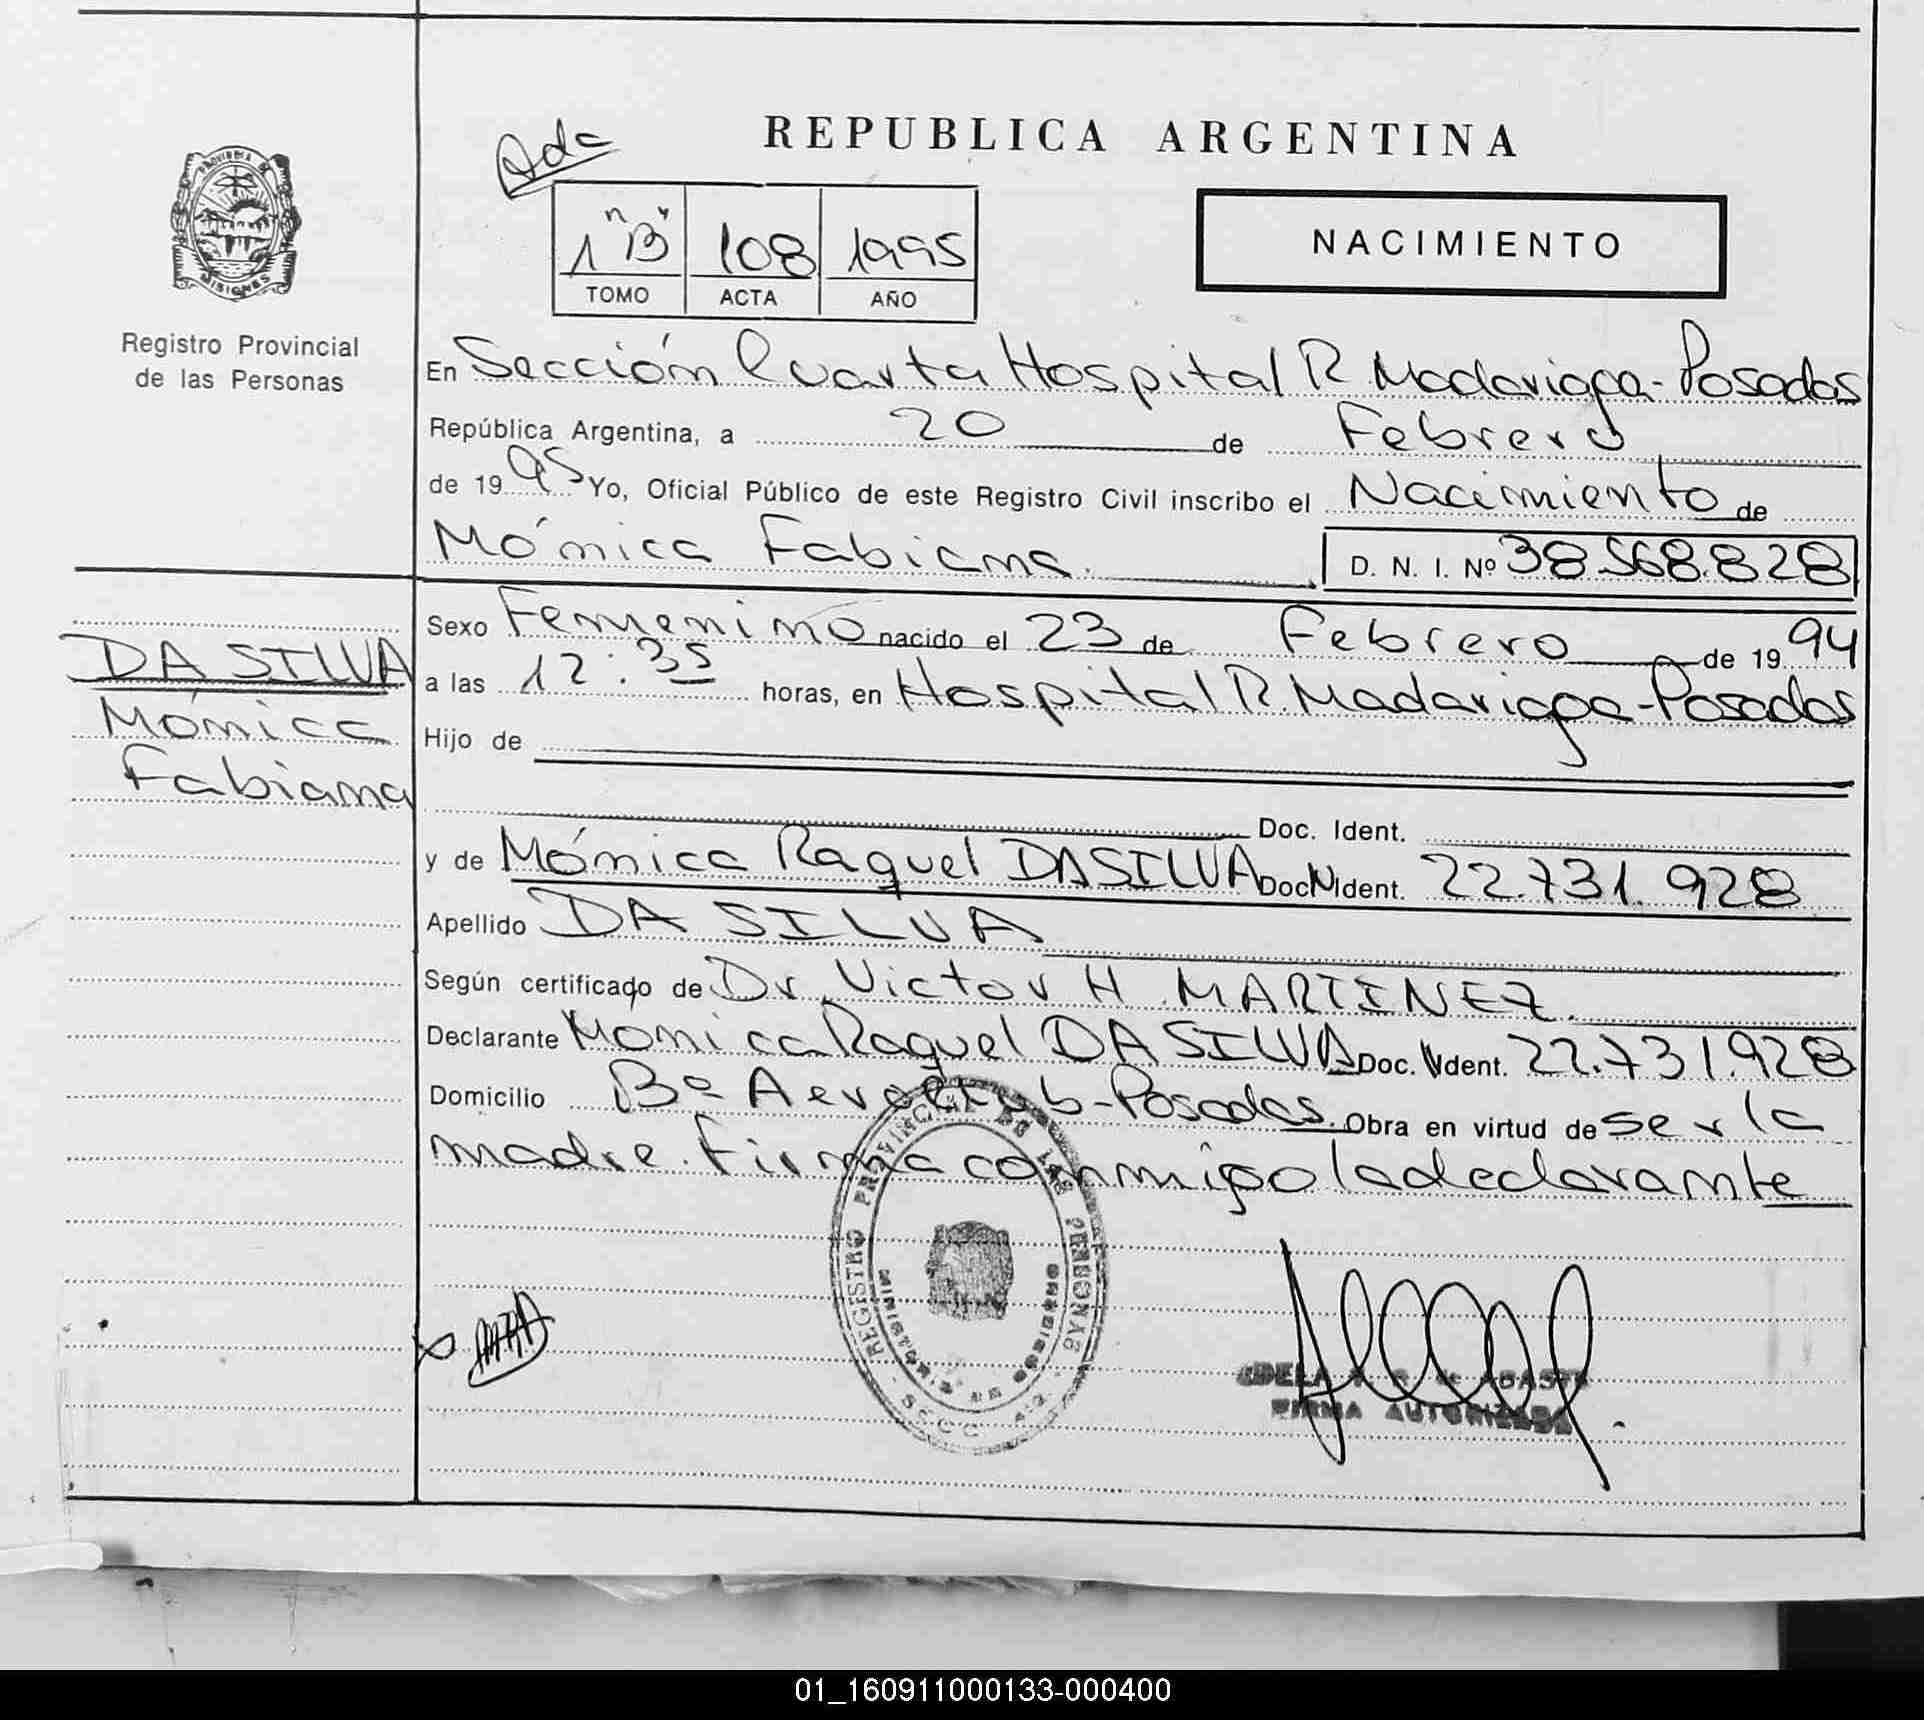 REPUBLICA ARGENTINA
Ada
1 "B" 108 1995
TOMO ACTA AÑO
NACIMIENTO
PROVINCIA DE
MISIONES
Registro Provincial
de las Personas
En Sección Cuarta Hospital R. Madariaga-Posadas
República Argentina, a 20 de Febrero
de 1995 Yo, Oficial Público de este Registro Civil inscribo el Nacimiento de
Mónica Fabiana. D. N. I. Nº 38.568.828
DA SILVA
Mónica
Fabiana
Sexo Femenino nacido el 23 de Febrero de 1994
a las 12:35 horas, en Hospital R. Madariaga-Posadas
Hijo de
Doc. Ident.
y de Mónica Raquel DA SILVA Doc. Ident. 22.731.928
Apellido DA SILVA
Según certificado de Dr. Victor H. MARTINEZ.
Declarante Mónica Raquel DA SILVA Doc. Ident. 22.731.928
Domicilio Bº Aeroclub-Posadas. Obra en virtud de ser la
madre. Firma conmigo la declarante
REGISTRO PROVINCIAL DE LAS PERSONAS
MISIONES
FIRMA AUTORIZADA
01_160911000133-000400